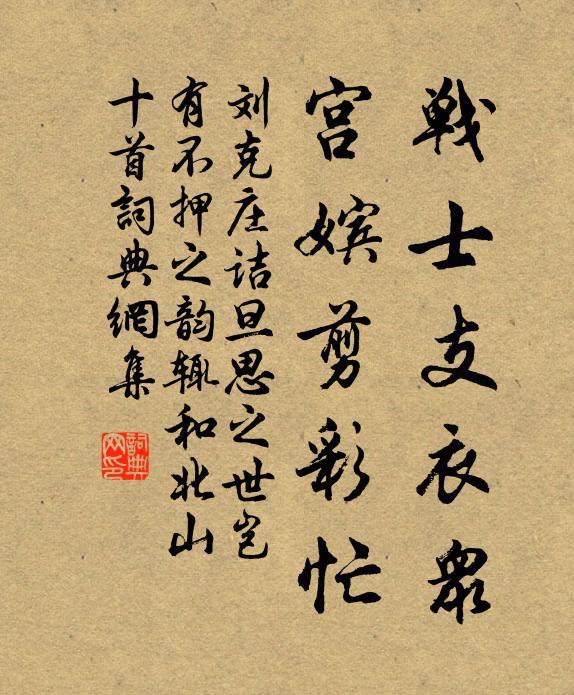 戦士支衣衆
宫嫔剪彩忙
刘克庄诘旦思之世岂
有不押之韵辄和北山
十首詞典網集
詞典網印